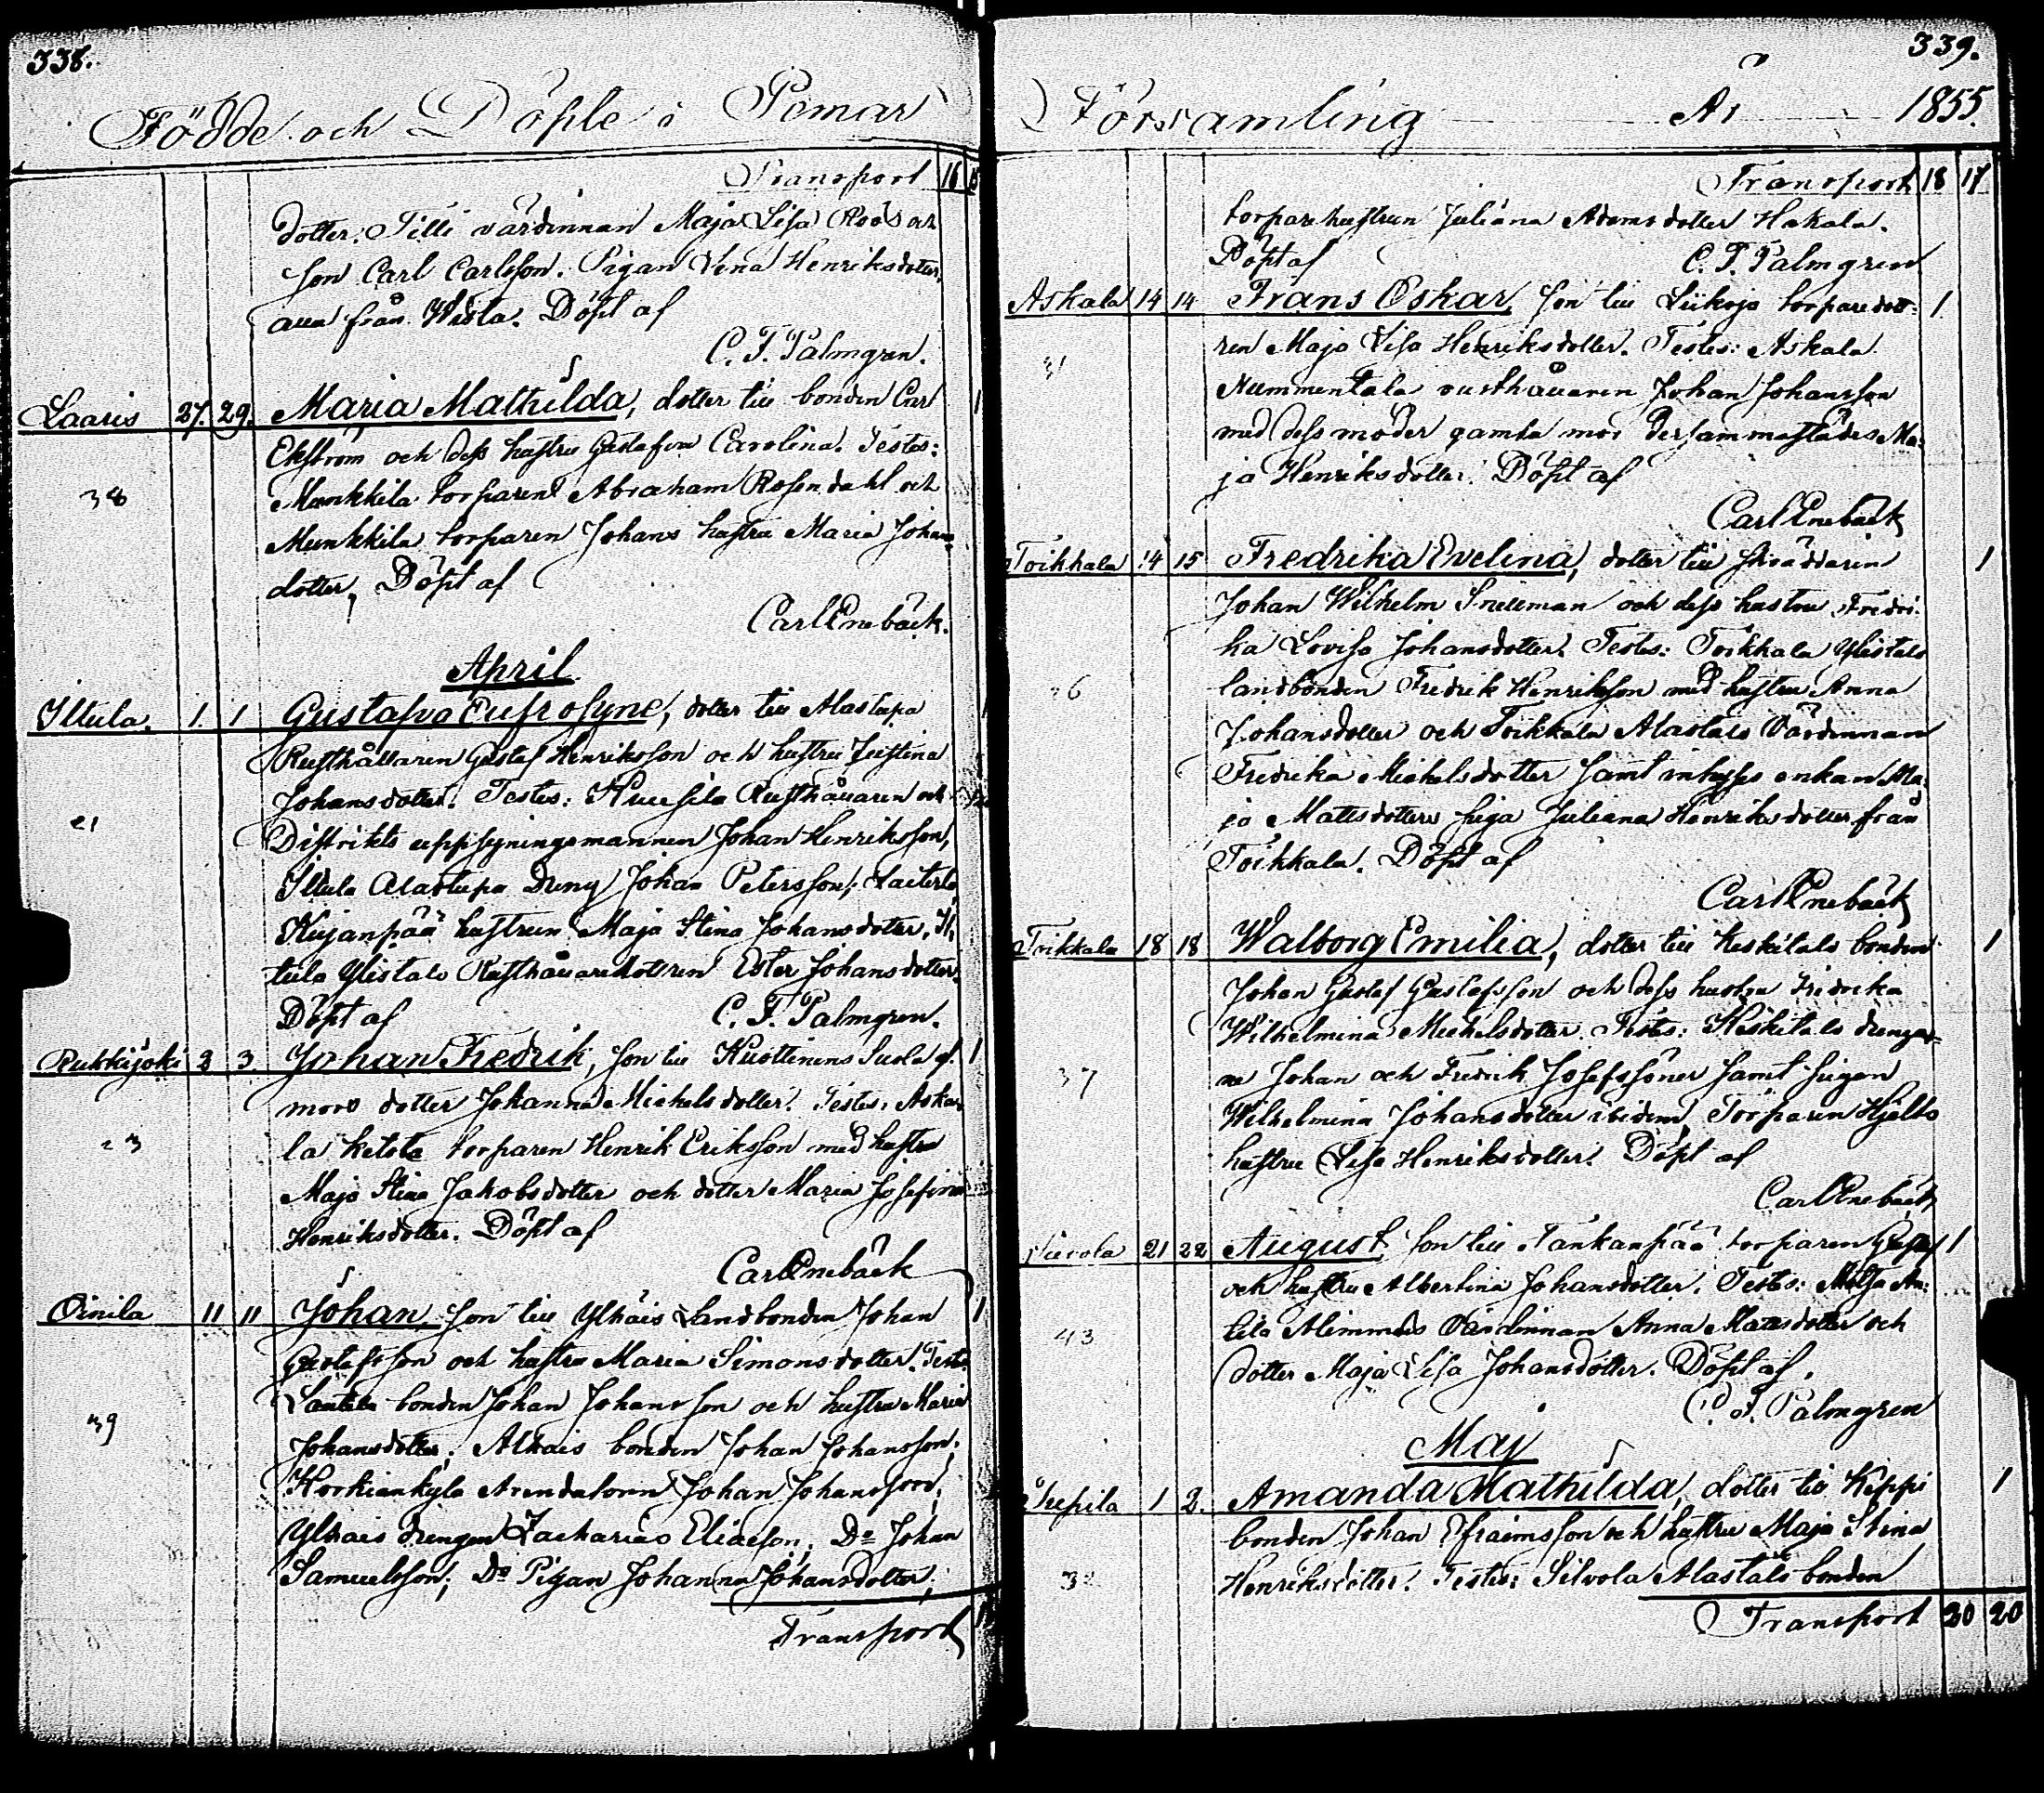 338.
Födde och Döpte i Pemar
Transport 16
dotter. Tilli värdinnan Maja Lisa Roos och
son Carl Carlsson. Pigan Lena Henriksdotter,
alla från Wista. Döpt af
C. F. Palmgren.
Laaris 27. 29. Maria Mathilda, dotter till bonden Carl 1
Ekström och dess hustru Gustafva Carolina. Testes:
38 Munkkila torparen Abraham Rosendahl och
Munkkila torparen Johans hustru Maria Johans
dotter, Döpt af
Carl Enebäck.
April
Iltula. 1. 1 Gustafva Eufrosyne, dotter till Alastupa
Rusthållaren Gustaf Henriksson och hustru Justina
Johansdotter. Testes: Rusthållaren och
21 Distrikts uppsyningsmannen Johan Henriksson,
Iltula Alastupa Dreng Johan Petersson,
Kujanpää hustrun Maja Stina Johansdotter, Il,
tula Ylistalo Rusthållaredottren Ester Johansdotter.
Döpt af C. F. Palmgren.
Rukkijoki 2 3. Johan Fredrik, son till Huottinens Suola gl. 1
mors dotter Johanna Michelsdotter. Testes: Aska,
23 la Ketola torparen Henrik Eriksson med hustru
Maja Stina Jakobsdotter och dotter Maria Josefina
Henriksdotter. Döpt af
Carl Enebäck
Oinila 11 11 Johan, son till Ylhäis Landbonden Johan 1
Gustafsson och hustru Maria Simonsdotter. Testes
Lautela bonden Johan Johansson och hustru Maria
39 Johansdotter; Alhais bonden Johan Johansson;
Korkiankylä Arendatorn Johan Johansson;
Ylhais drengen Zacharias Eliasson; Do Johan
Samuelsson; Do Pigan Johanna Johansdotter;
Transport
339.
Församling År 1855.
Transport 18 17
torparehustrun Juliana Adamsdotter Hakala.
Döpt af C. F. Palmgren
Askala 14 14 Frans Oskar, son till Liikoja torparedott- 1
ren Maja Lisa Henriksdotter. Testes: Askala
31 Nummentala rusthållaren Johan Johansson
med dess moder gamla mor dersammastädes Ma-
ja Henriksdotter. Döpt af
Carl Enebäck
Toikkala 14 15 Fredrika Evelina, dotter till skräddaren 1
Johan Wilhelm Snellman och dess hustru Fredri-
ka Lovisa Johansdotter. Testes: Toikkala Ylistalo
landbonden Fredrik Henriksson med hustru Anna
Johansdotter och Toikkala Alastalo Värdinnan
Fredrika Michelsdotter samt inhyses enkan Ma,
ja Mattsdotter piga Juliana Henriksdotter från
Toikkala. Döpt af
Carl Enebäck
Toikkala 18 18 Walborg Emilia, dotter till Keskitalo bonden 1
Johan Gustaf Gustafsson och dess hustru Fredrika
Wilhelmina Michelsdotter. Testes: Keskitalo drengar-
37 ne Johan och Fredrik Josefssöner samt pigan
Wilhelmina Johansdotter ibidem, Torparen Hjelts
hustru Lisa Henriksdotter. Döpt af
Carl Enebäck
21 22 August son till Tankanpää torparen Gustaf 1
och hustru Albertina Johansdotter. Testes:
43 tila Alimmais Värdinnan Anna Mattsdotter och
dotter Maja Lisa Johansdotter. Döpt af,
C. F. Palmgren
Maj
1 2. Amanda Mathilda, dotter till Kippi 1
bonden Johan Efraimsson och hustru Maja Stina
Henriksdotter. Testes: Silvola Alastalo bonden
Transport 20 20